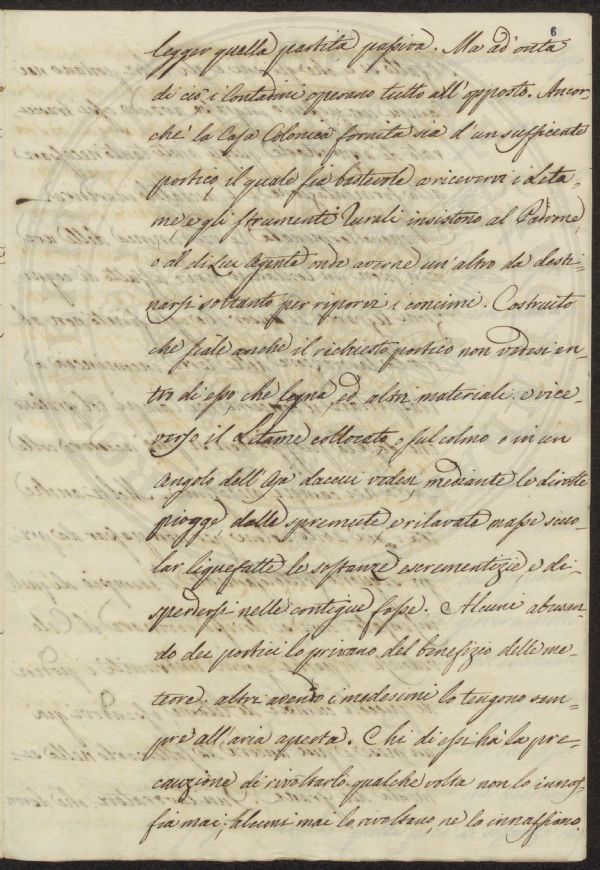 6
legger quella partita passiva. Ma ad'onta
di ciò i Contadini operano tutto all'opposto. Ancor-
chè la Casa Colonica fornita sia d'un sufficente
portico, il quale sia bastevole a ricevervi i Leta-
me e gli strumenti Rurali insistono al Padrone,
o al di Lui Agente onde averne un'altro da desti-
narsi soltanto per riporvi i concimi. Costruito
che siale anche il richiesto portico non vedesi en-
tro di esso, che legna, ed altri materiali, e vice-
verso il Letame collocato, o sul colmo o in un
Angolo dell'Aja daccui vedesi, mediante le dirotte
piogge dalle spremute e rilavate masse scuo-
lar liquefatte le sostanze escrementizie, e di-
sperdersi nelle contigue fosse. Alcuni abusan-
do dei portici lo privano del benefizio delle me-
teore, altri avendo i medesimi lo tengono sem-
pre all'aria aperta. Chi di essi hà la pre-
cauzione di rivoltarlo qualche volta non lo innaf-
fia mai, alcuni mai lo rivoltano, ne lo innaffiano.